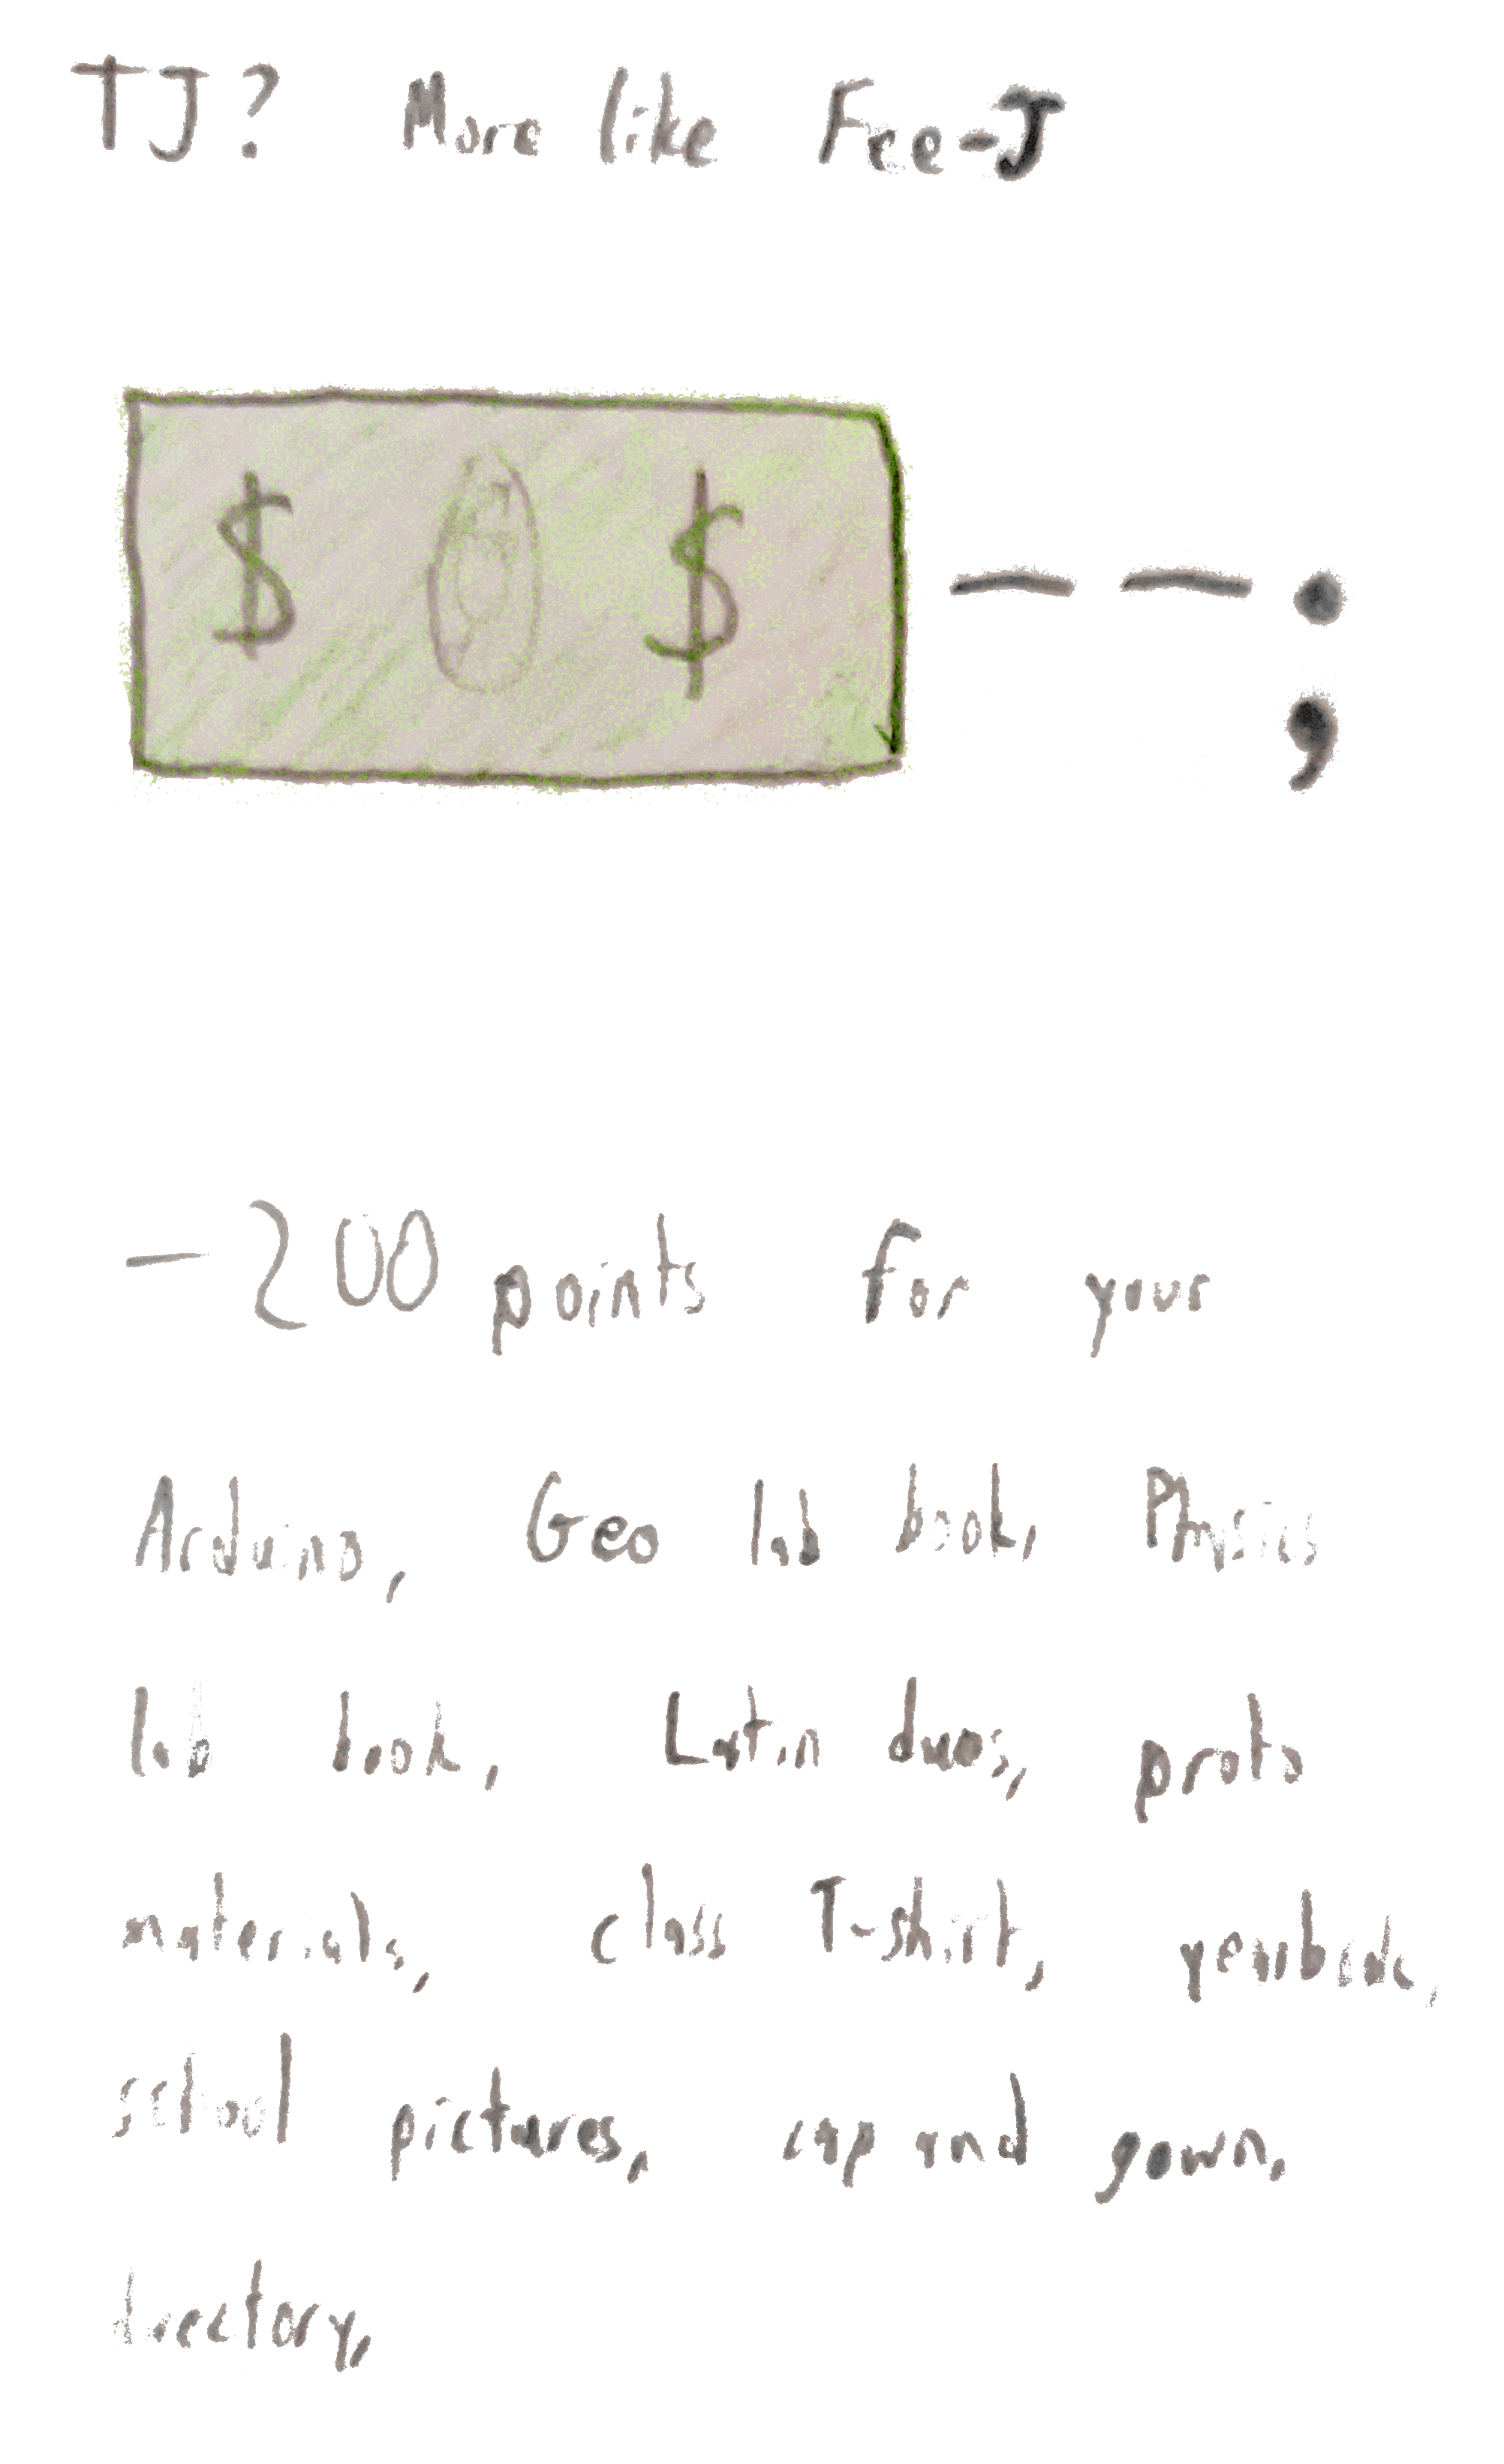 TJ? More like Fee-J
$ $
--;
-200 points for your
Arduino, Geo lab book, Physics
lab book, Latin dues, proto
materials, class T-shirt, yearbook,
school pictures, cap and gown,
directory,